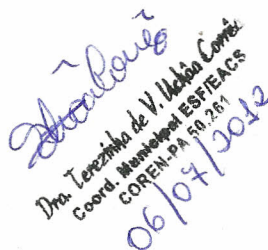 Dra. Terezinha de V. Uchôa Corrêa
Coord. Municipal ESF/EACS
COREN-PA 50.261
06/07/2012